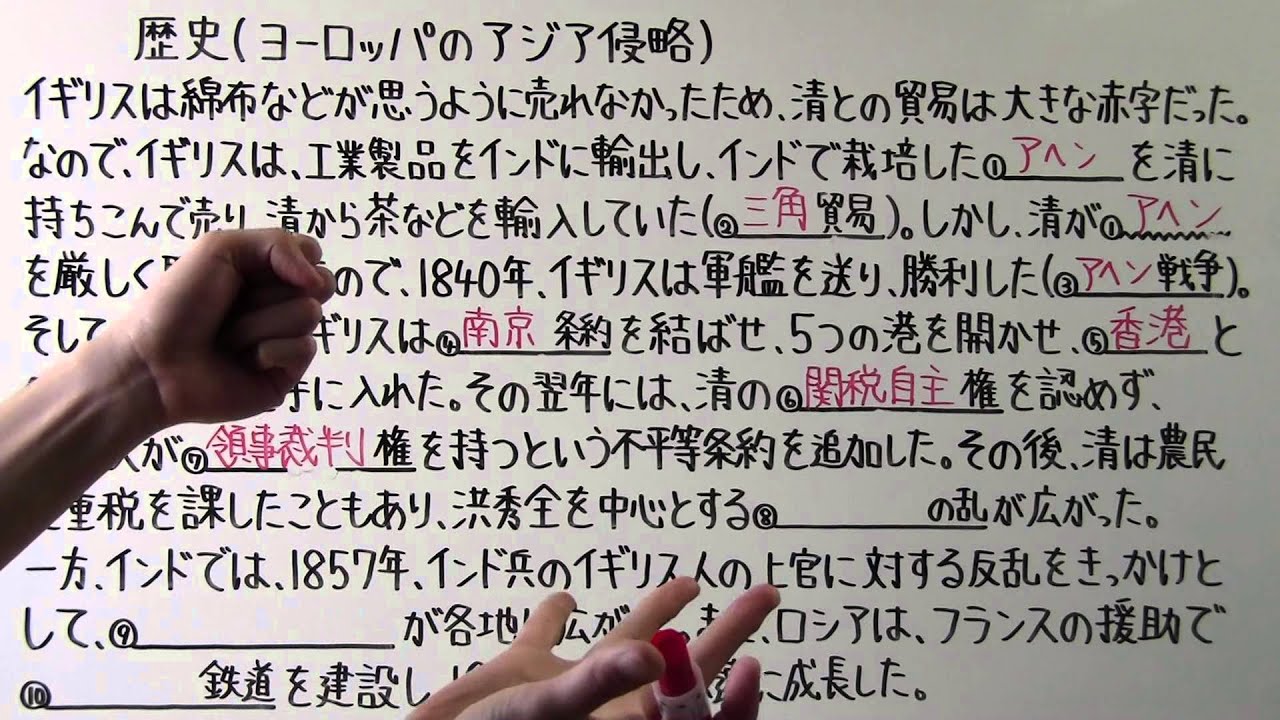 歴史(ヨーロッパのアジア侵略)
イギリスは綿布などが思うように売れなかったため、清との貿易は大きな赤字だった。
なので、イギリスは、工業製品をインドに輸出し、インドで栽培した①アヘンを清に
持ちこんで売り、清から茶などを輸入していた(②三角貿易)。しかし、清が①アヘン
を厳しく ので、1840年、イギリスは軍艦を送り、勝利した(③アヘン戦争)。
そして ギリスは④南京条約を結ばせ、5つの港を開かせ、⑤香港と
手に入れた。その翌年には、清の⑥関税自主権を認めず、
が⑦領事裁判権を持つという不平等条約を追加した。その後、清は農民
重税を課したこともあり、洪秀全を中心とする⑧ の乱が広がった。
一方、インドでは、1857年、インド兵のイギリス人の上官に対する反乱をきっかけと
して、⑨ が各地 広が ロシアは、フランスの援助で
⑩ 鉄道を建設し、 に成長した。